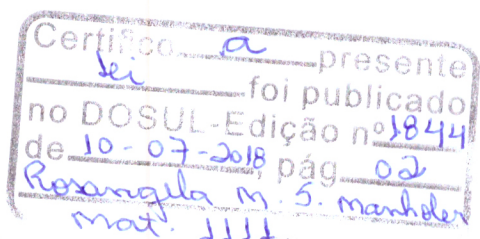 Certifico a presente
lei foi publicado
no DOSUL-Edição nº 1844
de 10-07-2018, pág. 02
Rosangela M. S.
mat. 1111